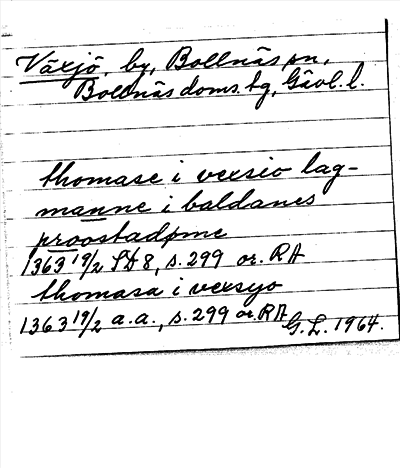 Växjö, by, Bollnäs sn,
Bollnäs doms.tg, Gävl. l.
thomase i vexsio lag-
manne i baldanes
proostadøme
1363 19/2 SD 8, s. 299 or. RA
thomasa i vexsyo
1363 19/2 a.a., s. 299 or. RA
G. L. 1964.